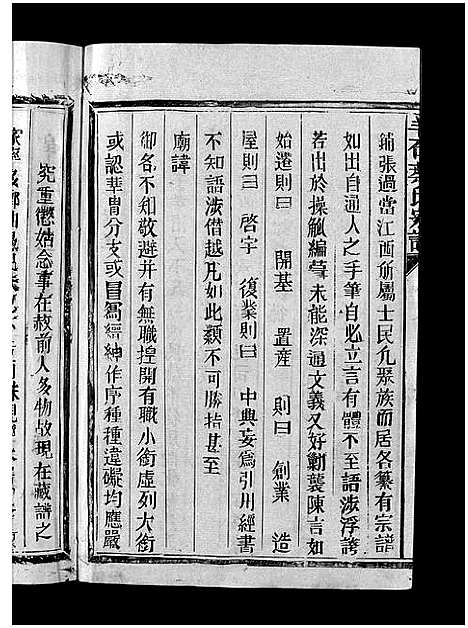 鋪張過當江西所屬士民凡聚族而居各纂有宗譜
如出自通人之手筆自必立言有體不至語涉浮誇
若出於操觚編葺未能深通文義又好勦襲陳言如
始遷則曰 開基 置産 則曰 創業 造
屋則曰 啓宇 復業則曰 中興妄爲引用經書
不知語涉僣越凡如此類不可勝指甚至
廟諱
御名不知敬避并有無職揑開有職小銜虛列大銜
或認華胄分支或冒爲縉紳作序種種違礙均應嚴
究重懲姑念事在赦前人多物故現在藏譜之